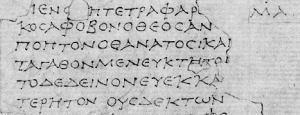 ΛΕΝΣ ΠΤΕΤΡΑΦΑΡ ΜΑ
ΚΟΣΑΦΟΒΟΝΟΘΕΟΣΑΝ
ΠΟΠΤΟΝΟΘΑΝΑΤΟΣΚΑΙ
ΤΑΓΑΘΟΝΜΕΝΕΥΚΤΗΤΟΙ
ΤΟΔΕΔΕΙΝΟΝΕΥΕΚΚΑ
ΤΕΡΗΤΟΝ ΟΥΣΔΕΚΤΩΝ